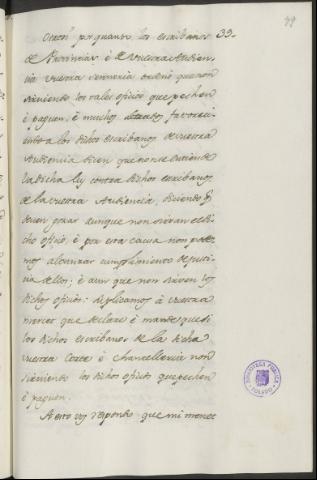 39.
Otrosi por quanto los escribanos
de Provincias, é de vuestra Audien-
cia vuestra Señoria ordenó que non
sirviendo los tales oficios que pechen
é paguen; é muchos Letrados favoreci-
endo a los dichos escribanos de vuestra
Audiencia dicen que non se entiende
la dicha ley contra dichos escribanos
de la vuestra Audiencia, diciendo q
deven gozar aunque non sirvan el di-
cho oficio, é por esta causa non pode-
mos alcanzar cumplimiento de justi-
cia dellos; é aun que non sirven los
dichos oficios: suplicamos á vuestra
merced que declare é mande que si
los dichos escribanos de la dicha
vuestra Corte é Chancelleria non
sirviendo los dichos oficios que pechen
é paguen.
A esto vos respondo que mi merced
BIBLIOTECA PUBLICA
TOLEDO